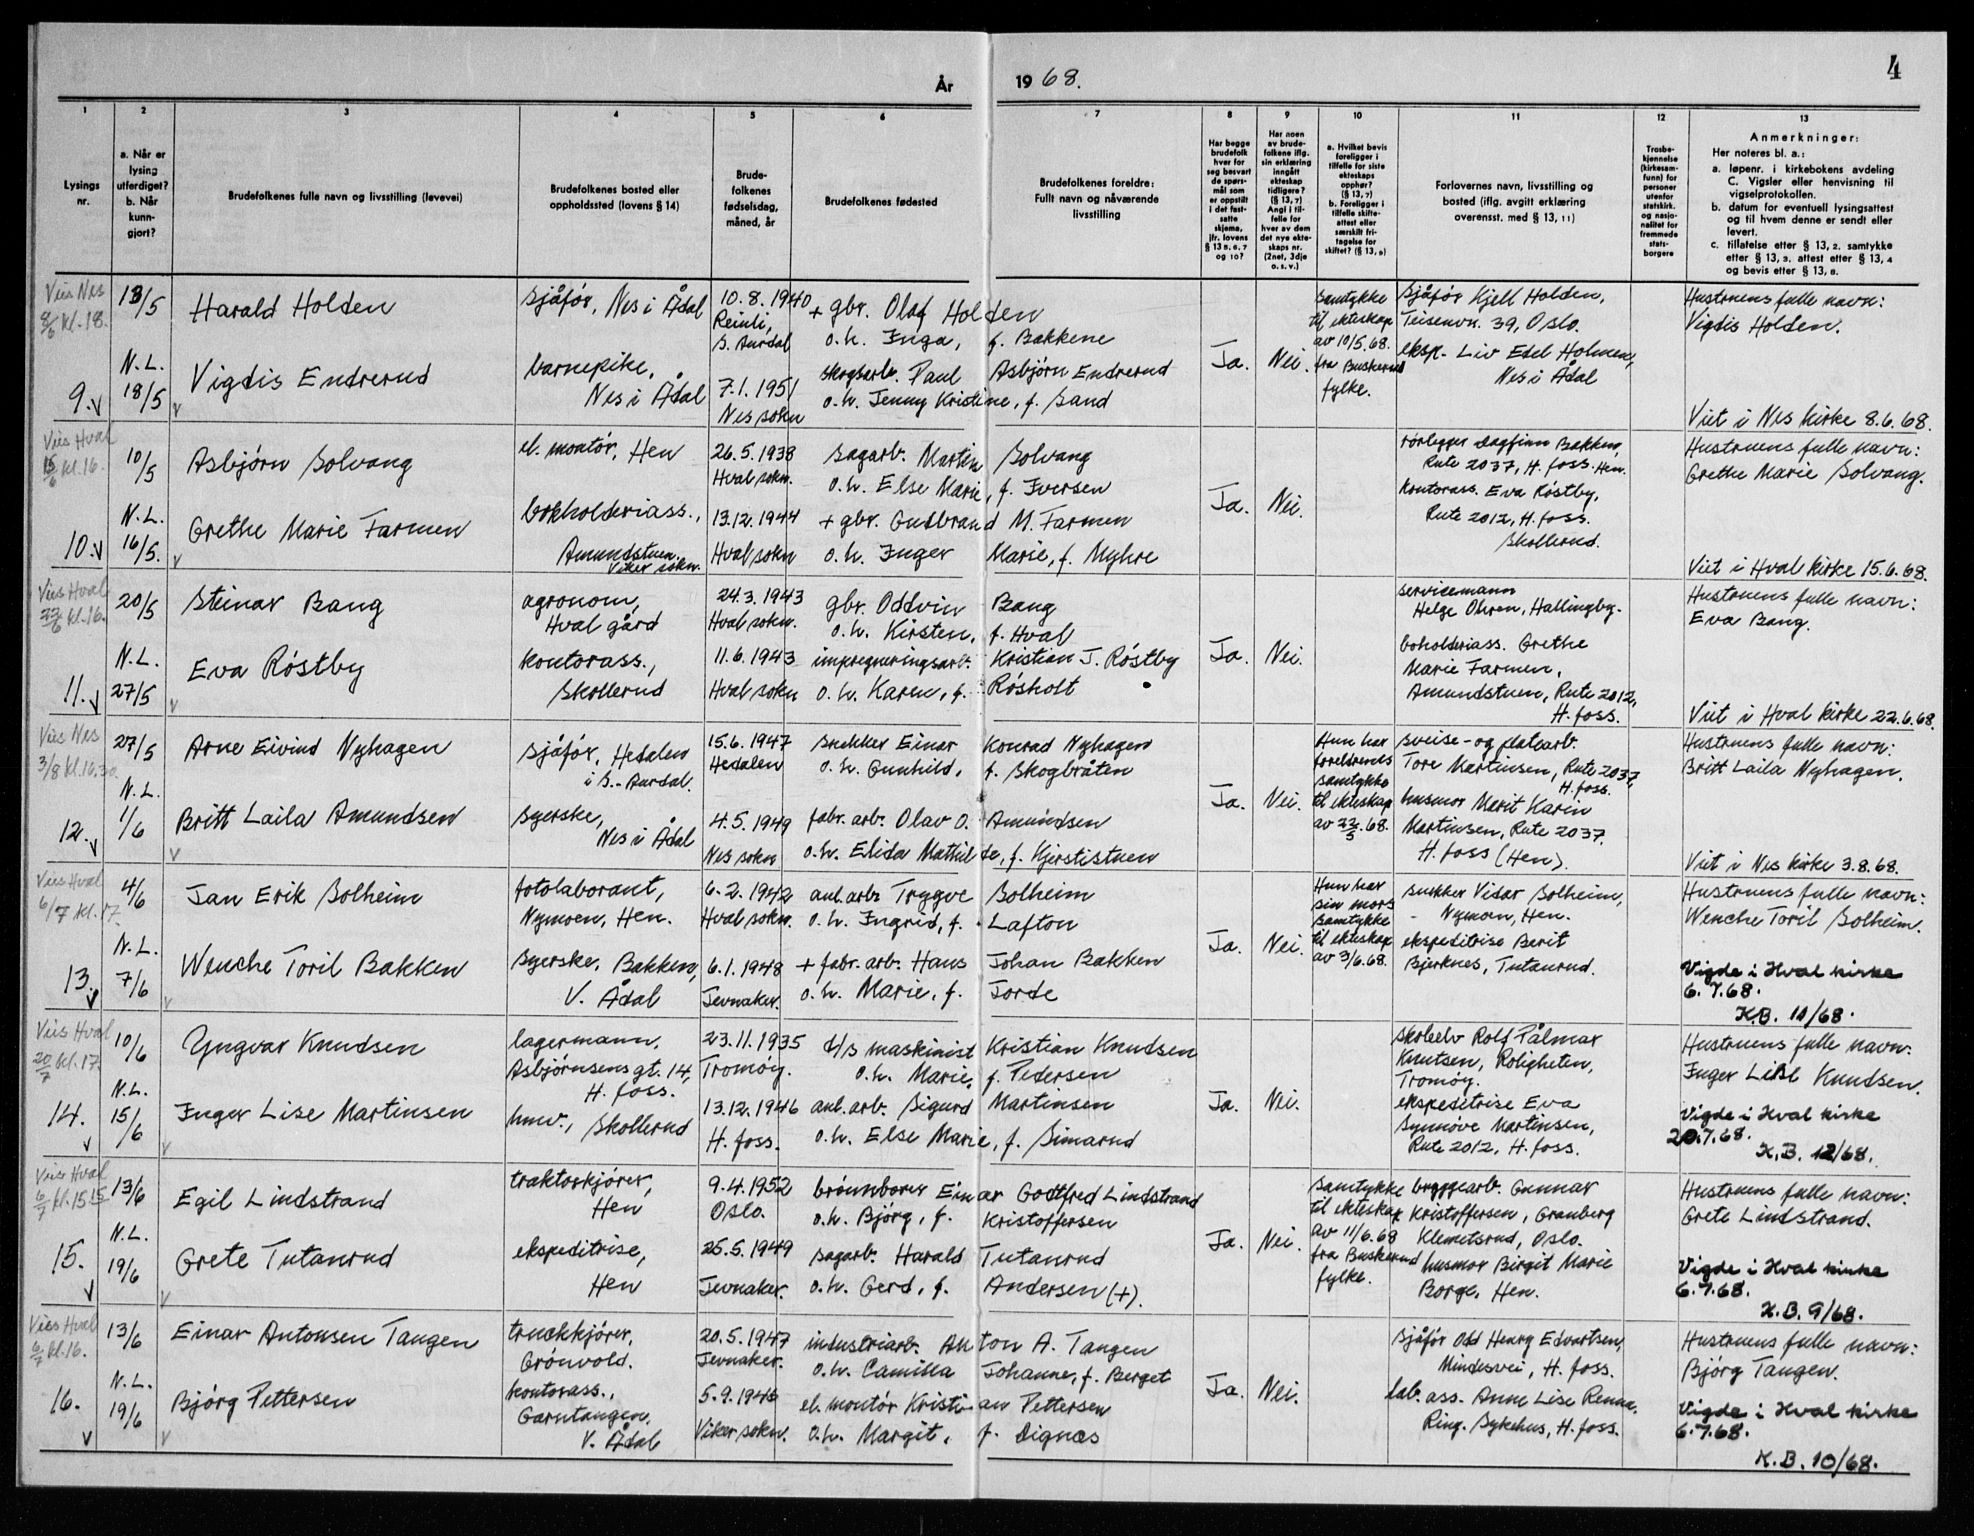 År 1968.
4
1 2 3 4 5 6 7 8 9 10 11 12 13
Lysings nr.
a. Når er lysing utferdiget? b. Når kunngjort?
Brudefolkenes fulle navn og livsstilling (levevei)
Brudefolkenes bosted eller oppholdssted (lovens § 14)
Brudefolkenes fødselsdag, måned, år
Brudefolkenes fødested
Brudefolkenes foreldre: Fullt navn og nåværende livsstilling
Har begge brudefolk hver for seg besvart de spørsmål som er oppstilt i det fastsatte skjema, jfr. lovens § 13 5, 6, 7 og 10?
Har noen av brudefolkene iflg. sin erklæring inngått ekteskap tidligere? (§ 13, 7) Angi i tilfelle for hver av dem det nye ekteskaps nr. (2net, 3dje o. s. v.)
a. Hvilket bevis foreligger i tilfelle for siste ekteskaps opphør? (§ 13, 7) b. Foreligger i tilfelle skifteattest eller særskilt fritagelse for skiftet? (§ 13, 9)
Forlovernes navn, livsstilling og bosted (iflg. avgitt erklæring overensst. med § 13, 11)
Trosbekjennelse (kirkesamfunn) for personer utenfor statskirk. og nasjonalitet for fremmede statsborgere
Anmerkninger:
Her noteres bl. a.:
a. løpenr. i kirkebokens avdeling C. Vigsler eller henvisning til vigselprotokollen.
b. datum for eventuell lysingsattest og til hvem denne er sendt eller levert.
c. tillatelse etter § 13, 2. samtykke etter § 13, 3. attest etter § 13, 4 og bevis etter § 13, 8.
Vies Nes 8/6 kl. 18.
13/5
Harald Holden
sjåfør, Nes i Ådal
10.8.1940
Reinli, S. Aurdal
+ gbr. Olaf Holden
o.h. Inga, f. Bakkene
samtykke til ekteskap av 10/5.68. fra Buskerud fylke.
sjåfør Kjell Holden,
Teisenvn. 39, Oslo.
Hustruens fulle navn:
Vigdis Holden.
N.L.
9.
18/5
Vigdis Endrerud
barnepike,
Nes i Ådal
7.1.1951
Nes sokn
skogsarb. Paul Asbjørn Endrerud
o.h. Jenny Kristine, f. Sand
Ja. Nei.
eksp. Liv Edel Holmen,
Nes i Ådal
Viet i Nes kirke 8.6.68.
Vies Hval 15/6 kl. 16.
10/5
Asbjørn Solvang
el. montør, Hen
26.5.1938
Hval sokn.
sagarb. Martin Solvang
o.h. Else Marie, f. Iversen
rørlegger Dagfinn Bakken,
Rute 2037, H. foss. Hen.
Hustruens fulle navn:
Grethe Marie Solvang.
N.L.
10.
16/5.
Grethe Marie Farmen
bokholderiass.,
Amundstuen.
Viker sokn.
13.12.1944
Hval sokn
+ gbr. Gudbrand M. Farmen
o.h. Inger Marie, f. Myhre
Ja. Nei.
kontorass. Eva Røstby,
Rute 2012, H. foss.
Skollerud.
Viet i Hval kirke 15.6.68.
Vies Hval 22/6 kl. 16.
20/5
Steinar Bang
agronom,
Hval gård
24.3.1943
Hval sokn.
gbr. Oddvin Bang
o.h. Kirsten, f. Hval
servicemann
Helge Ohren, Hallingby.
Hustruens fulle navn:
Eva Bang.
N.L.
11.
27/5
Eva Røstby
kontorass.,
Skollerud
11.6.1943
Hval sokn
impregneringsarb. Kristian J. Røstby
o.h. Karen, f. Røsholt
Ja. Nei.
boholderiass. Grethe
Marie Farmen,
Amundstuen, Rute 2012,
H. foss.
Viet i Hval kirke 22.6.68.
Vies Nes 3/8 kl. 16.30.
27/5
Arne Eivind Nyhagen
sjåfør, Hedalen
i S.-Aurdal.
15.6.1947
Hedalen
snekker Einar Konrad Nyhagen
o.h. Gunhild, f. Skogbråten
Hun har foreldrenes samtykke til ekteskap av 22/5.68.
sveise- og platearb.
Tore Martinsen, Rute 2037,
H. foss.
Hustruens fulle navn:
Britt Laila Nyhagen.
N.L.
12.
1/6
Britt Laila Amundsen
syerske,
Nes i Ådal
4.5.1949
Nes sokn
fabr. arb. Olav O. Amundsen
o.h. Elida Mathilde, f. Kjerstistuen
Ja. Nei.
husmor Marit Karin
Martinsen, Rute 2037.
H. foss (Hen).
Viet i Nes kirke 3.8.68.
Vies Hval 6/7 kl. 17.
4/6
Jan Erik Solheim
fotolaborant,
Nymoen, Hen.
6.2.1942
Hval sokn.
anl. arb. Trygve Solheim
o.h. Ingrid, f. Lafton
Hun har sin mors samtykke til ekteskap av 3/6.68.
snekker Vidar Solheim,
- Nymoen, Hen.
Hustruens fulle navn:
Wenche Toril Solheim.
N.L.
13.
7/6
Wenche Toril Bakken
syerske, Bakken,
V. Ådal
6.1.1948
Jevnaker.
+ fabr. arb. Hans Johan Bakken
o.h. Marie, f. Jorde
Ja. Nei.
ekspeditrise Berit
Bjerknes, Tutanrud.
Vigde i Hval kirke
6.7.68.
K.B. 11/68.
Vies Hval 20/7 kl. 17.
10/6
Yngvar Knudsen
lagermann,
Asbjørnsens gt. 14,
H. foss.
23.11.1935
Tromøy.
d/s maskinist Kristian Knudsen
o.h. Marie, f. Pedersen
skoleelv Rolf Pålmar
Knutsen, Roligheten,
Tromøy.
Hustruens fulle navn:
Inger Lise Knudsen.
N.L.
14.
15/6
Inger Lise Martinsen
hmv., Skollerud
13.12.1946
H. foss.
anl. arb. Sigurd Martinsen
o.h. Else Marie, f. Simarud
Ja. Nei.
ekspeditrise Eva
Synnøve Martinsen,
Rute 2012, H. foss.
Vigde i Hval kirke
20.7.68.
K.B. 12/68.
Vies Hval 6/7 kl. 15 15
13/6
Egil Lindstrand
traktorkjører,
Hen
9.4.1952
Oslo.
brønnborer Einar Godtfred Lindstrand
o.h. Bjørg, f. Kristoffersen
samtykke til ekteskap av 11/6.68 fra Buskerud fylke.
bryggearb. Gunnar
Kristoffersen, Granberg
Klemetsrud, Oslo.
Hustruens fulle navn:
Grete Lindstrand.
N.L.
15.
19/6
Grete Tutanrud
ekspeditrise,
Hen
25.5.1949
Jevnaker.
sagarb. Harald Tutanrud
o.h. Gerd, f. Andersen (+).
Ja. Nei.
husmor Birgit Marie
Borge, Hen.
Vigde i Hval kirke
6.7.68.
K.B. 9/68.
Vies Hval 6/7 kl. 16.
13/6
Einar Antonsen Tangen
truckkjører,
Grønvold.
20.5.1947
Jevnaker.
industriarb. Anton A. Tangen
o.h. Camilla Johanne, f. Berget
sjåfør Odd Henry Edvartsen,
Mindesvei, H. foss.
Hustruens fulle navn:
Bjørg Tangen.
N.L.
16.
19/6
Bjørg Pettersen
kontorass.,
Garntangen,
V. Ådal
5.9.1946
Viker sokn.
el. montør Kristian Pettersen
o.h. Margit, f. Dignes
Ja. Nei.
lab. ass. Anne Lise Renna,
Ring. Sykehus, H. foss.
Vigde i Hval kirke
6.7.68.
K.B. 10/68.